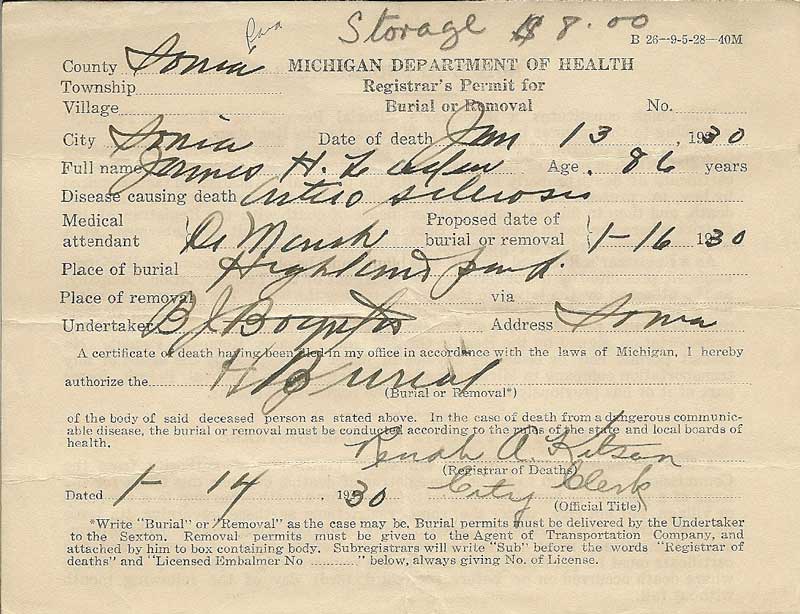 Storage $8.00
B 26—9-5-28—40M
County Ionia MICHIGAN DEPARTMENT OF HEALTH
Township Registrar's Permit for
Village Burial or Removal No.
City Ionia Date of death Jan 13 1930
Full name James H. Age 86 years
Disease causing death Arterio sclerosis
Medical attendant Dr Marsh Proposed date of burial or removal 1-16 1930
Place of burial Highland Park.
Place of removal via
Undertaker B J Boynton Address Ionia
A certificate of death having been filed in my office in accordance with the laws of Michigan, I hereby
authorize the Burial
(Burial or Removal*)
of the body of said deceased person as stated above. In the case of death from a dangerous communic-
able disease, the burial or removal must be conducted according to the rules of the state and local boards of
health.
A.
(Registrar of Deaths)
Dated 1-14 1930 City Clerk
(Official Title)
*Write "Burial" or "Removal" as the case may be. Burial permits must be delivered by the Undertaker
to the Sexton. Removal permits must be given to the Agent of Transportation Company, and
attached by him to box containing body. Subregistrars will write "Sub" before the words "Registrar of
deaths" and "Licensed Embalmer No .........." below, always giving No. of License.